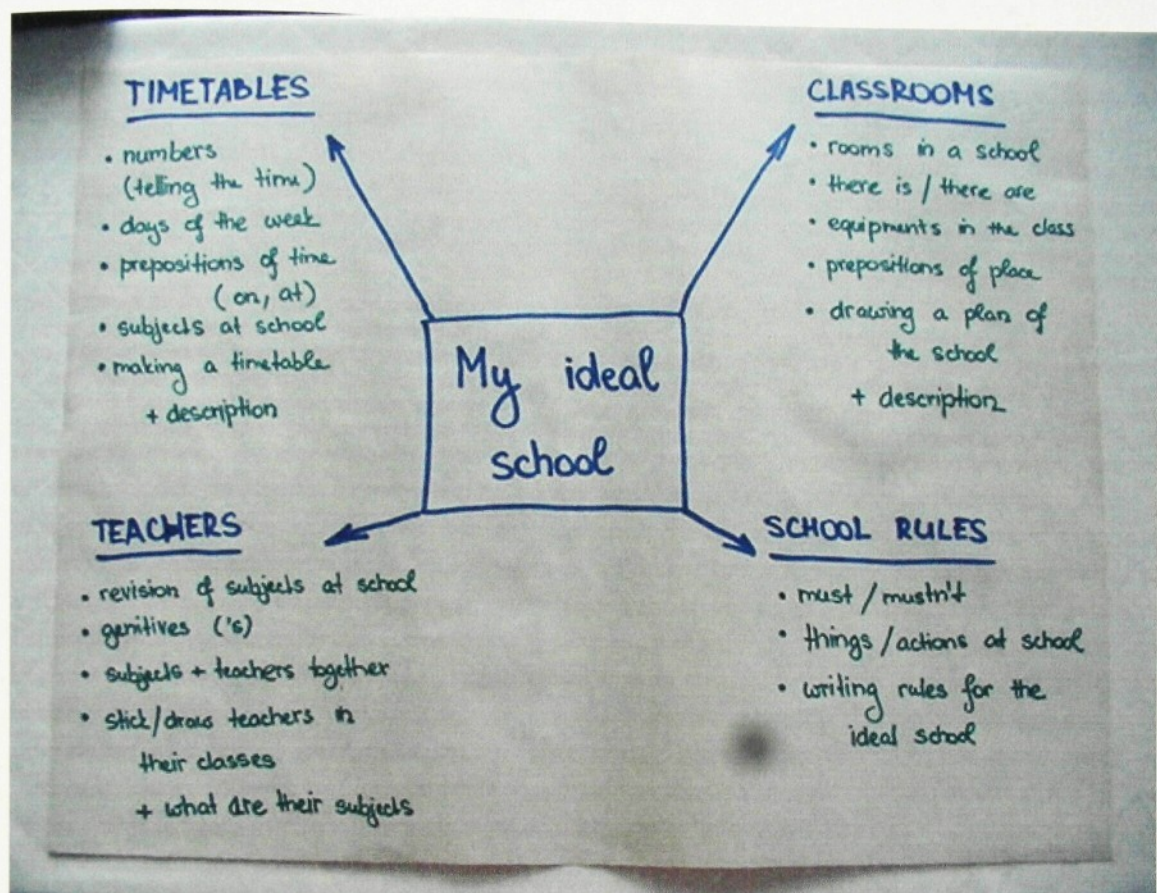 TIMETABLES
• numbers
(telling the time)
• days of the week
• prepositions of time
(on, at)
• subjects at school
• making a timetable
+ description
CLASSROOMS
• rooms in a school
• there is / there are
• equipments in the class
• prepositions of place
• drawing a plan of
the school
+ description
My ideal
school
TEACHERS
• revision of subjects at school
• genitives ('s)
• subjects + teachers together
• stick/draw teachers in
their classes
+ what are their subjects
SCHOOL RULES
• must / mustn't
• things / actions at school
• writing rules for the
ideal school